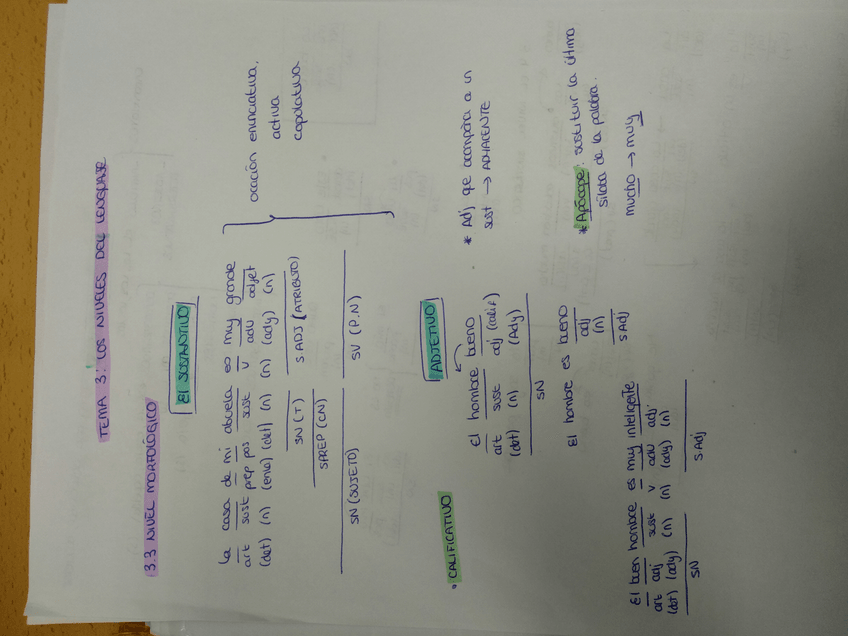 TEMA 3: LOS NIVELES DEL LENGUAJE
3.3 NIVEL MORFOLÓGICO
El SUSTANTIVO
La casa de mi abuela es muy grande
art sust prep pos sust v adv adjet
(det) (n) (enla) (det) (n) (n) (ady) (n)
SN (T) S ADJ (ATRIBUTO)
SPREP (CN)
SN (SUJETO) SV (P.N)
oración enunciativa,
activa
copulativa
ADJETIVO
• CALIFICATIVO
El hombre bueno
art sust adj (calif)
(det) (n) (Ady)
SN
* Adj que acompaña a un
sust → ADYACENTE
El hombre es bueno
adj
(n)
SAdj
* Apócope: sustituir la última
sílaba de la palabra.
mucho → muy
El buen hombre es muy inteligente
art adj sust v adv adj
(det) (ady) (n) (n) (ady) (n)
SN S Adj